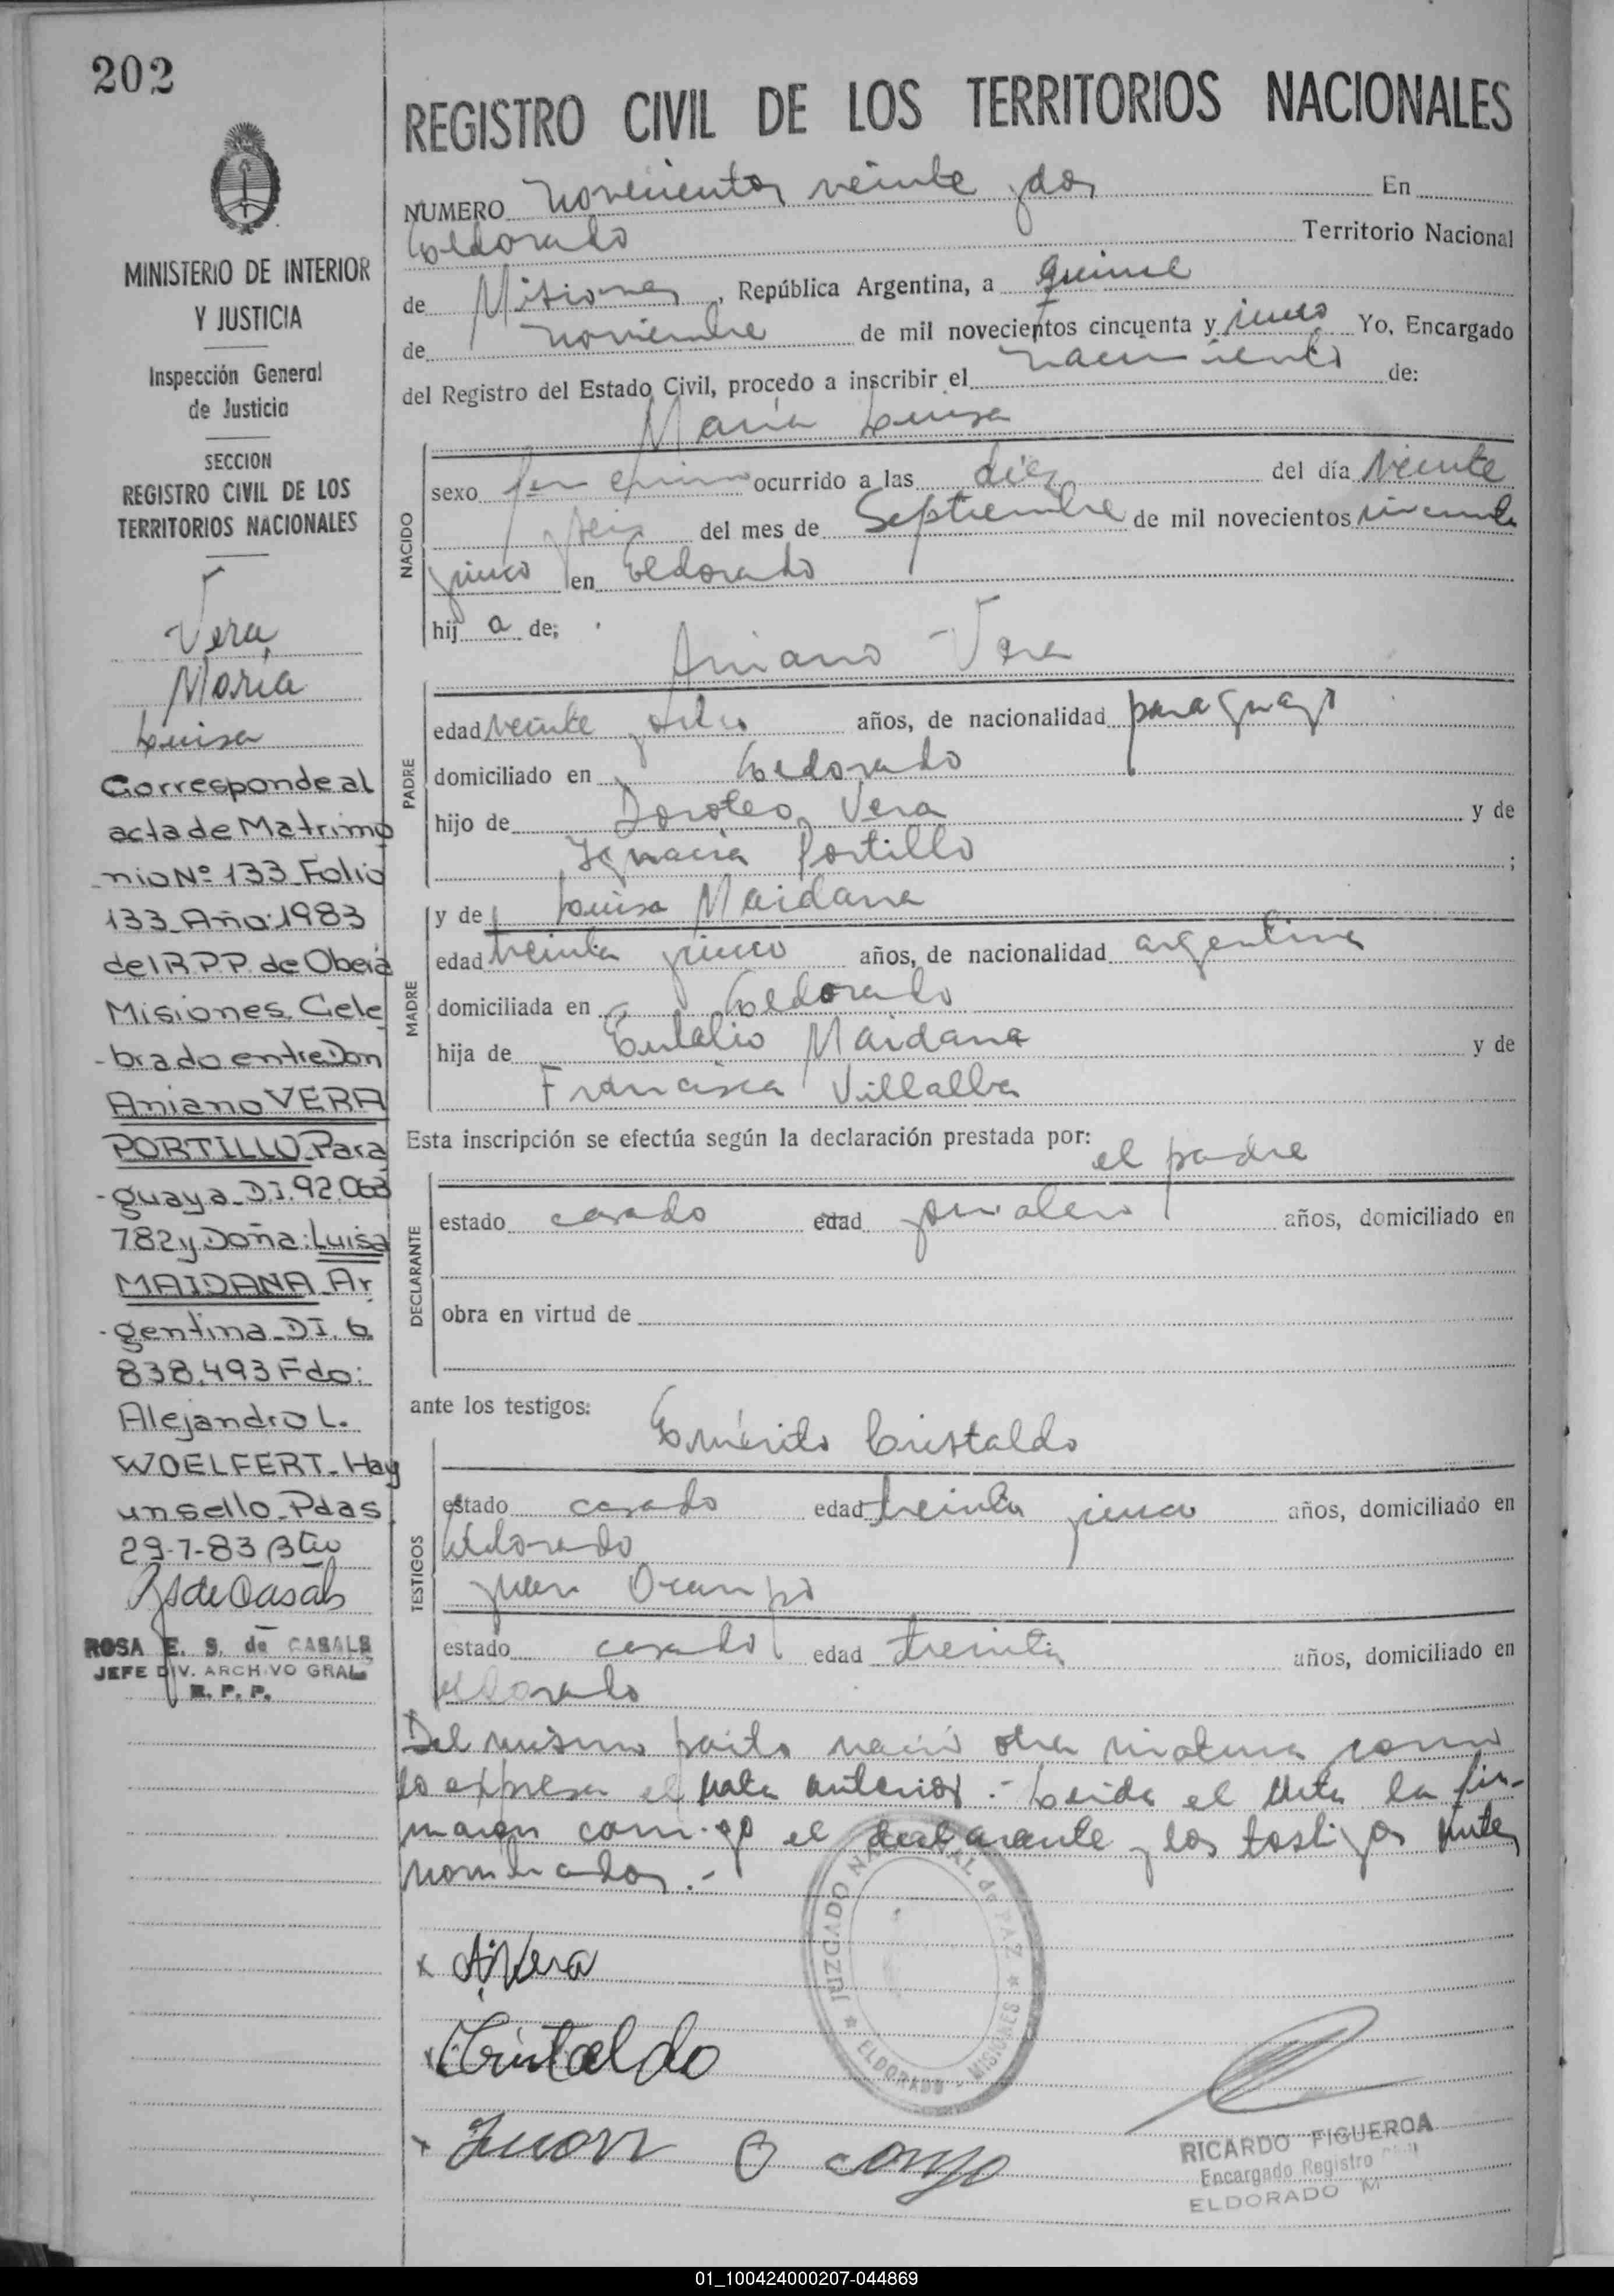 202
MINISTERIO DE INTERIOR
Y JUSTICIA
Inspección General
de Justicia
SECCION
REGISTRO CIVIL DE LOS
TERRITORIOS NACIONALES
Vera,
María
Luisa
Corresponde al
acta de Matrimo
-nio Nº 133 Folio
133 Año: 1983
del R.P.P. de Oberá
Misiones. Cele
-brado entre Don
Aniano VERA
PORTILLO Para
-guaya D.I. 92.063
782 y Doña: Luisa
MAIDANA Ar
-gentina DI. 6.
838.493 Fdo:
Alejandro L.
WOELFERT - Hay
un sello - Pdas
29-7-83
RSdeCasals
ROSA E. S. de CASALS
JEFE DIV. ARCHIVO GRAL.
R. P. P.
REGISTRO CIVIL DE LOS TERRITORIOS NACIONALES
NUMERO novecientos veinte y dos En
Eldorado Territorio Nacional
de Misiones, República Argentina, a quince
de noviembre de mil novecientos cincuenta y cinco Yo, Encargado
del Registro del Estado Civil, procedo a inscribir el nacimiento de:
María Luisa
NACIDO
sexo femenino ocurrido a las diez del día veinte
y seis del mes de Septiembre de mil novecientos cincuenta
y cinco en Eldorado
hij a de:
Aniano Vera
PADRE
edad veinte y ocho años, de nacionalidad paraguayo
domiciliado en Eldorado
hijo de Doroteo Vera y de
Ignacia Portillo ;
MADRE
y de Luisa Maidana
edad treinta y cinco años, de nacionalidad argentina
domiciliada en Eldorado
hija de Eulalio Maidana y de
Francisca Villalba
Esta inscripción se efectúa según la declaración prestada por:
el padre
DECLARANTE
estado casado edad jornalero años, domiciliado en
obra en virtud de
ante los testigos:
Emérito Cristaldo
TESTIGOS
estado casado edad treinta y cinco años, domiciliado en
Eldorado
Juan Ocampo
estado casado edad treinta años, domiciliado en
Eldorado
Del mismo parto nació otra criatura como
lo expresa el acta anterior.- Leida el acta la fir-
maron conmigo el declarante y los testigos antes
nombrados.-
x A. Vera
x Cristaldo
x Juan Ocampo
JUZGADO NACIONAL de PAZ
ELDORADO - MISIONES
RICARDO FIGUEROA
Encargado Registro Civil
ELDORADO M
01_100424000207-044869